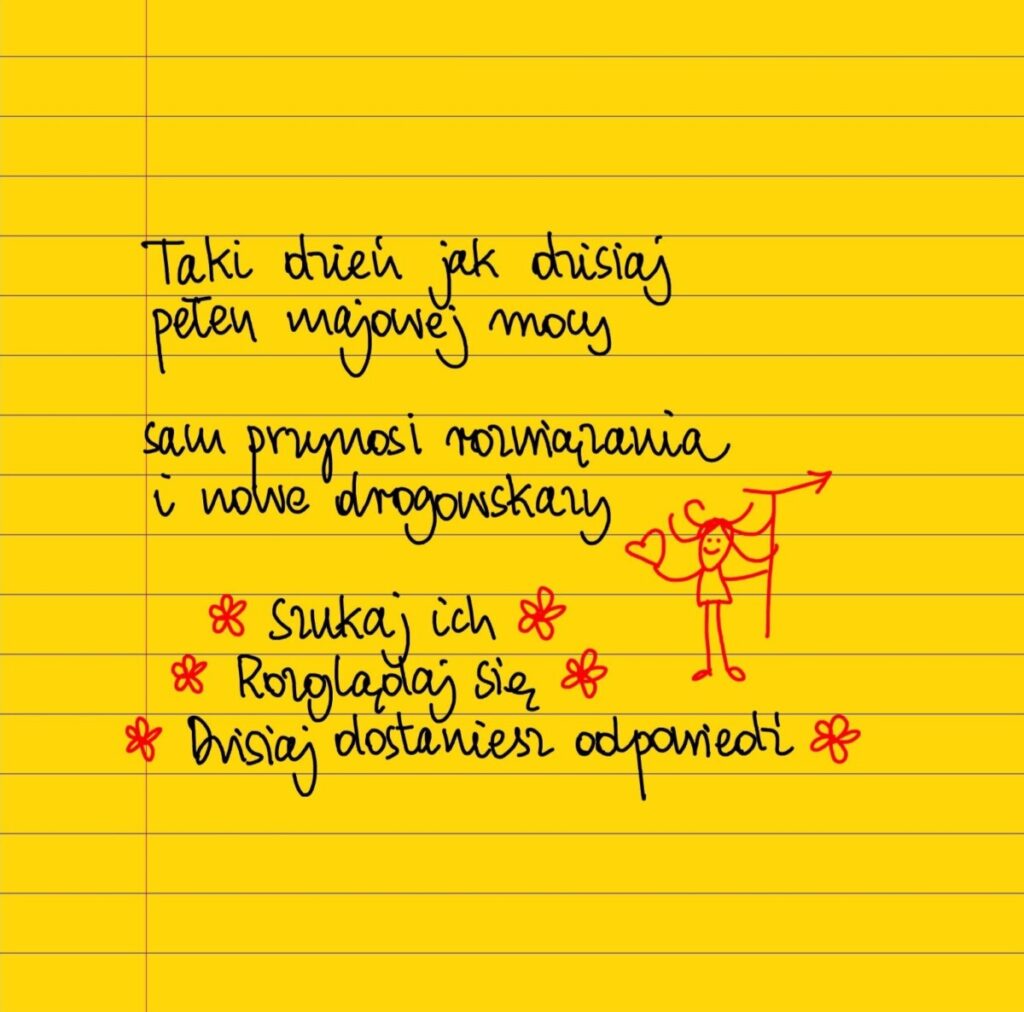 Taki dzień jak dzisiaj
pełen majowej mocy
sam przynosi rozwiązania
i nowe drogowskazy
Szukaj ich
Rozglądaj się
Dzisiaj dostaniesz odpowiedź